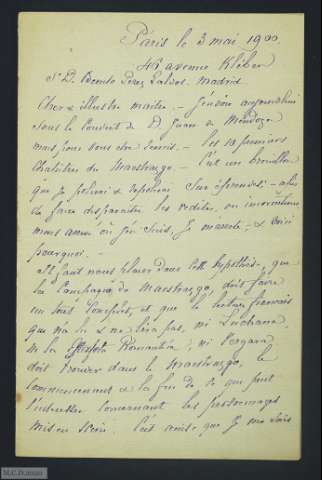 Paris le 3 mai 1900
46 avenue Kléber
Sr D. Benito Perez Galdos. Madrid
Cher & illustre maitre. - J'envoie aujourd'hui
sous le couvert de D. Juan de Mendoza
mais pour vous cher maitre - les 10 premiers
chapitres du Maestrazgo. - C'est un brouillon
que je polirai & repolirai sur épreuves. - afin
de faire disparaitre les redites, ou inversions
mais comme j'en suis, & voici
pourquoi. -
Il faut nous placer dans cette hypothèse, que
La Campagne de Maestrazgo, doit faire
un tout complet, et que le lecteur français
qui n'a lu & ne lira pas, ni Luchana,
ni la Estafeta Romantica, ni Vergara,
doit trouver dans le Maestrazgo, le
commencement & la fin de ce qui peut
l'intéresser concernant les personnages
mis en scène. C'est ainsi que je me suis
M.C.D. 2020